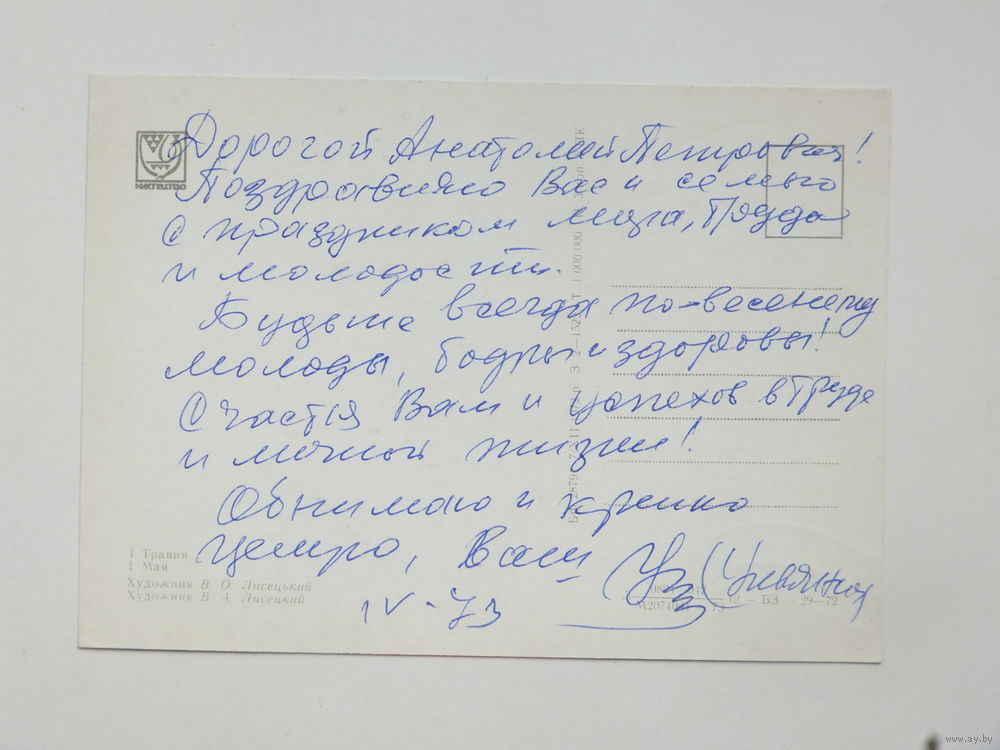 Дорогой Анатолий Петрович!
Поздравляю Вас и семью
с праздником мира, труда
и молодости.
Будьте всегда по-весеннему
молоды, бодры и здоровы!
Счастья Вам и успехов в труде
и личной жизни!
Обнимаю и крепко
целую, Ваш
(Ульяник)
IV-73
МИСТЕЦТВО
1 Травня
1 Мая
Художник В. О. Лисецький
Художник В. А. Лисецкий
12 — БЗ — 29—72
www.ay.by